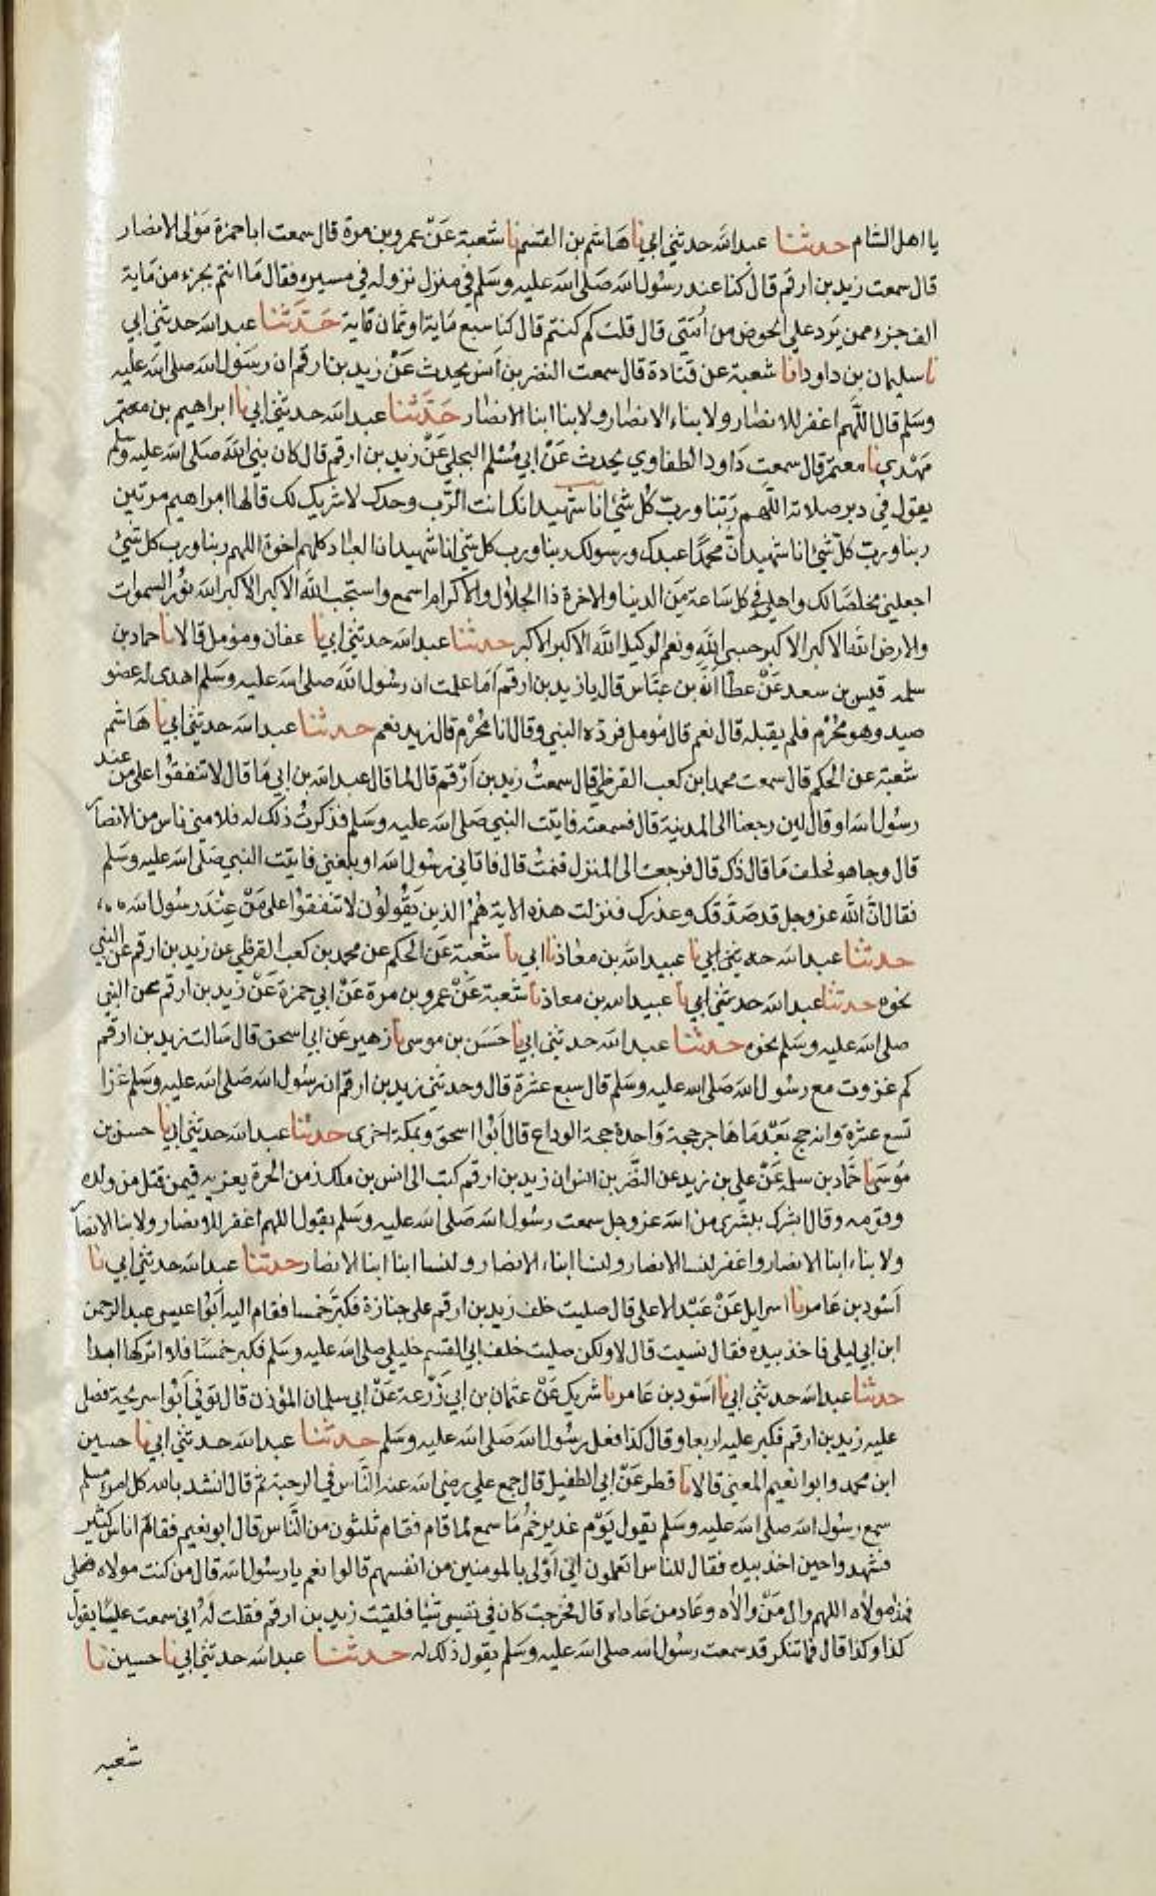 يا اهل الشام حدثنا عبد الله حدثني ابي نا هاشم بن القسم نا شعبة عن عمرو بن مرة قال سمعت ابا حمزة مولى الانصار
قال سمعت زيد بن ارقم قال كنا عند رسول الله صلى الله عليه وسلم في منزل نزوله في مسيره فقال ما انتم بجزء من ماية
الف جزء ممن يرد علي الحوض من امتي قال قلت كم كنتم قال كنا سبع ماية او ثمان ماية حدثنا عبد الله حدثني ابي
نا سليمان بن داود انا شعبة عن قتادة قال سمعت النضر بن انس يحدث عن زيد بن ارقم ان رسول الله صلى الله عليه
وسلم قال اللهم اغفر للانصار ولابناء الانصار ولابنا ابنا الانصار حدثنا عبد الله حدثني ابي نا ابراهيم بن معتمر
مهدي نا معتمر قال سمعت داود الطفاوي يحدث عن ابي مسلم البجلي عن زيد بن ارقم قال كان نبي الله صلى الله عليه وسلم
يقول في دبر صلاته اللهم ربنا ورب كل شئ انا شهيد انك انت الرب وحدك لا شريك لك قالها ابراهيم مرتين
ربنا ورب كل شئ انا شهيد ان محمدا عبدك ورسولك ربنا ورب كل شئ انا شهيد ان العباد كلهم اخوة اللهم ربنا ورب كل شئ
اجعلني مخلصا لك واهلي في كل ساعة من الدنيا والاخرة ذا الجلال والاكرام اسمع واستجب الله الاكبر الاكبر الله نور السموات
والارض الله الاكبر الاكبر حسبي الله ونعم الوكيل الله الاكبر الاكبر حدثنا عبد الله حدثني ابي نا عفان ومومل قالا نا حماد بن
سلمه قيس بن سعد عن عطا ان بن عباس قال يا زيد بن ارقم اما علمت ان رسول الله صلى الله عليه وسلم اهدى له عضو
صيد وهو محرم فلم يقبله قال نعم قال مومل فرده النبي وقال انا محرم قال زيد نعم حدثنا عبد الله حدثني ابي نا هاشم
شعبة عن الحكم قال سمعت محمد ابن كعب القرظي قال سمعت زيد بن ارقم قال لما قال عبد الله بن ابي ما قال لا تنفقوا على من عند
رسول الله او قال لين رجعنا الى المدينة قال فسمعته فاتيت النبي صلى الله عليه وسلم فذكرت ذلك له فلامني ناس من الانصار
قال وجا هو فحلف ما قال ذك قال فرجعت الى المنزل فنمت قال فاتاني رسول الله او بلغني فاتيت النبي صلى الله عليه وسلم
فقال ان الله عز وجل قد صدقك وعذرك فنزلت هذه الاية هم الذين يقولون لا تنفقوا على من عند رسول الله
حدثنا عبد الله حدثني ابي نا عبيد الله بن معاذ نا ابي نا شعبة عن الحكم عن محمد بن كعب القرظي عن زيد بن ارقم عن النبي
نحوه حدثنا عبد الله حدثني ابي نا عبيد الله بن معاذ نا شعبة عن عمرو بن مرة عن ابي حمزة عن زيد بن ارقم عن النبي
صلى الله عليه وسلم نحوه حدثنا عبد الله حدثني ابي نا حسن بن موسى نا زهير عن ابي اسحق قال سالت زيد بن ارقم
كم غزوت مع رسول الله صلى الله عليه وسلم قال سبع عشرة قال وحدثني زيد بن ارقم ان رسول الله صلى الله عليه وسلم غزا
تسع عشرة وانه حج بعد ما هاجر حجة واحدة حجة الوداع قال ابوا اسحق وبمكة اخرى حدثنا عبد الله حدثني ابي نا حسن بن
موسى نا حماد بن سلمة عن علي بن زيد عن النضر بن انس ان زيد بن ارقم كتب الى انس بن ملك زمن الحرة يعزيه فيمن قتل من ولده
وقومه وقال ابشرك ببشرى من الله عز وجل سمعت رسول الله صلى الله عليه وسلم يقول اللهم اغفر للانصار ولابنا الانصار
ولابناء ابنا الانصار واغفر لنسا الانصار ولنسا ابناء الانصار ولنسا ابنا ابنا الانصار حدثنا عبد الله حدثني ابي نا
اسود بن عامر نا اسرايل عن عبد الاعلى قال صليت خلف زيد بن ارقم على جنازة فكبر خمسا فقام اليه ابوا عيسى عبد الرحمن
ابن ابي ليلى فاخذ بيده فقال نسيت قال لا ولكن صليت خلف ابي القسم خليلي صلى الله عليه وسلم فكبر خمسا فلا اتركها ابدا
حدثنا عبد الله حدثني ابي نا اسود بن عامر نا شريك عن عثمان بن ابي زرعة عن ابي سلمان المؤذن قال توفي ابوا سريحة فصلى
عليه زيد بن ارقم فكبر عليه اربعا وقال كذا فعل رسول الله صلى الله عليه وسلم حدثنا عبد الله حدثني ابي نا حسين
ابن محمد وابوا نعيم المعني قالا نا قطر عن ابي الطفيل قال جمع علي رضي الله عنه الناس في الرحبة ثم قال انشد بالله كل امرئ مسلم
سمع رسول الله صلى الله عليه وسلم يقول يوم غدير خم ما سمع لما قام فقام ثلثون من الناس قال ابو نعيم فقام اناس كثير
فشهدوا حين اخذ بيده فقال للناس اتعلمون اني اولى بالمومنين من انفسهم قالوا نعم يا رسول الله قال من كنت مولاه فعلي
فهذا مولاه اللهم وال من والاه وعاد من عاداه قال فخرجت كان في نفسي شيا فلقيت زيد بن ارقم فقلت له اني سمعت عليا يقول
كذا وكذا قال فما تنكر قد سمعت رسول الله صلى الله عليه وسلم يقول ذلك له حدثنا عبد الله حدثني ابي نا حسين نا
شعبه